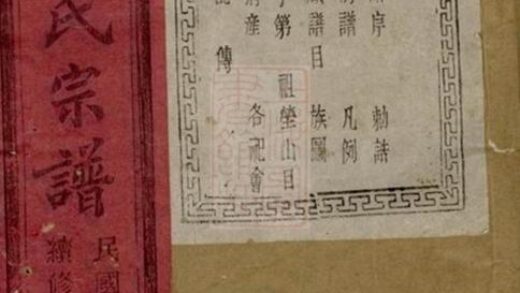 序 勅誥
譜 凡例
譜目 族圖
第 祖塋山目
產 各祀會
傳
氏宗譜
民國
續修